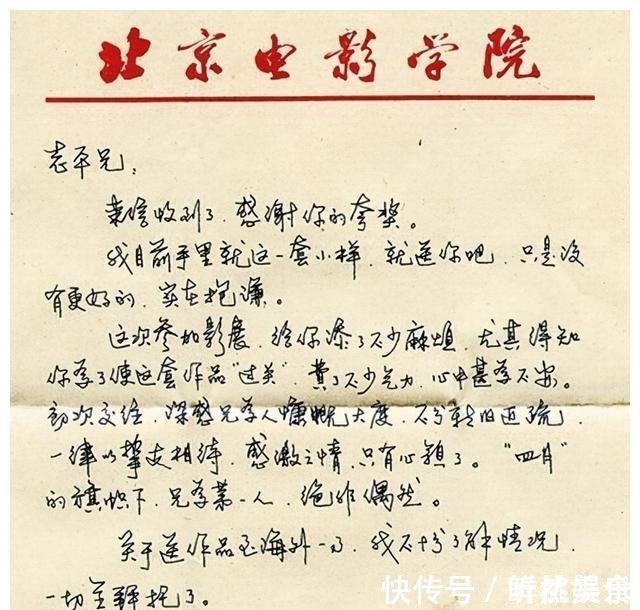 北京电影学院
志平兄:
来信收到了、感谢你的夸奖。
我目前手里就这一套小样、就送你吧、只是没
有更好的、实在抱歉。
这次参加影展、给你添了不少麻烦、尤其得知
你为了使这套作品“过关”、费了不少气力、心中甚为不安。
初次交往、深感兄为人慷慨大度、不分新旧近疏、
一律以挚友相待、感激之情、只有心领了。“四月”
的旗帜下、兄为第一人、绝非偶然。
关于送作品至海外一事、我不十分了解情况、
一切全拜托了。
快传号/听